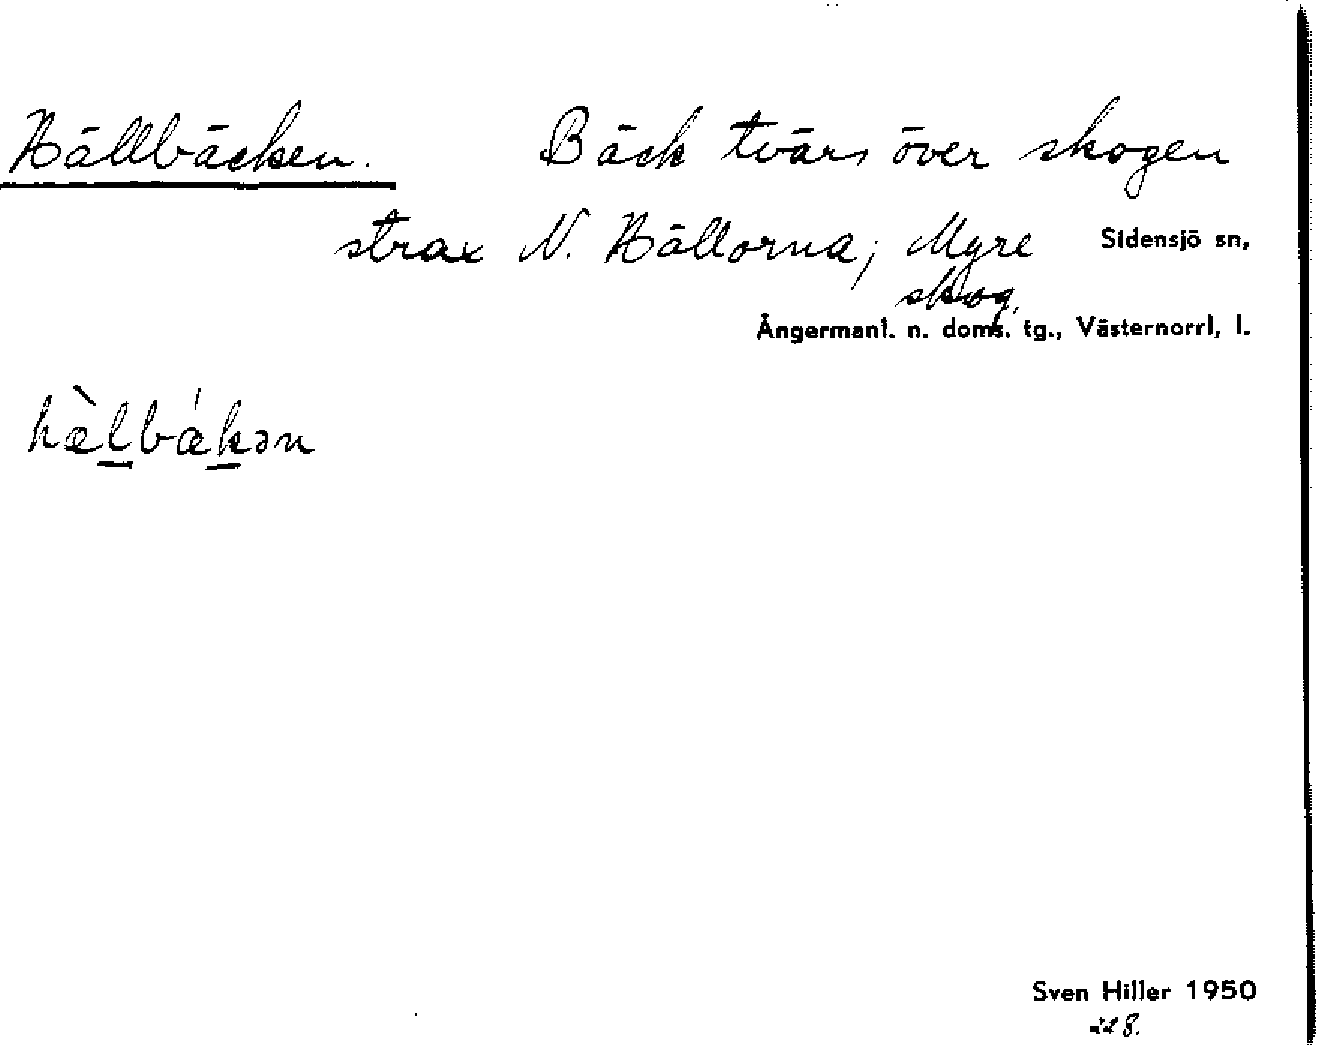 Hällbäcken. Bäck tvärs över skogen
strax N. Hällorna; Myre Sidensjö sn,
skog,
Ångermanl. n. doms. tg., Västernorrl. l.
hæ̀lbækən
Sven Hiller 1950
8.